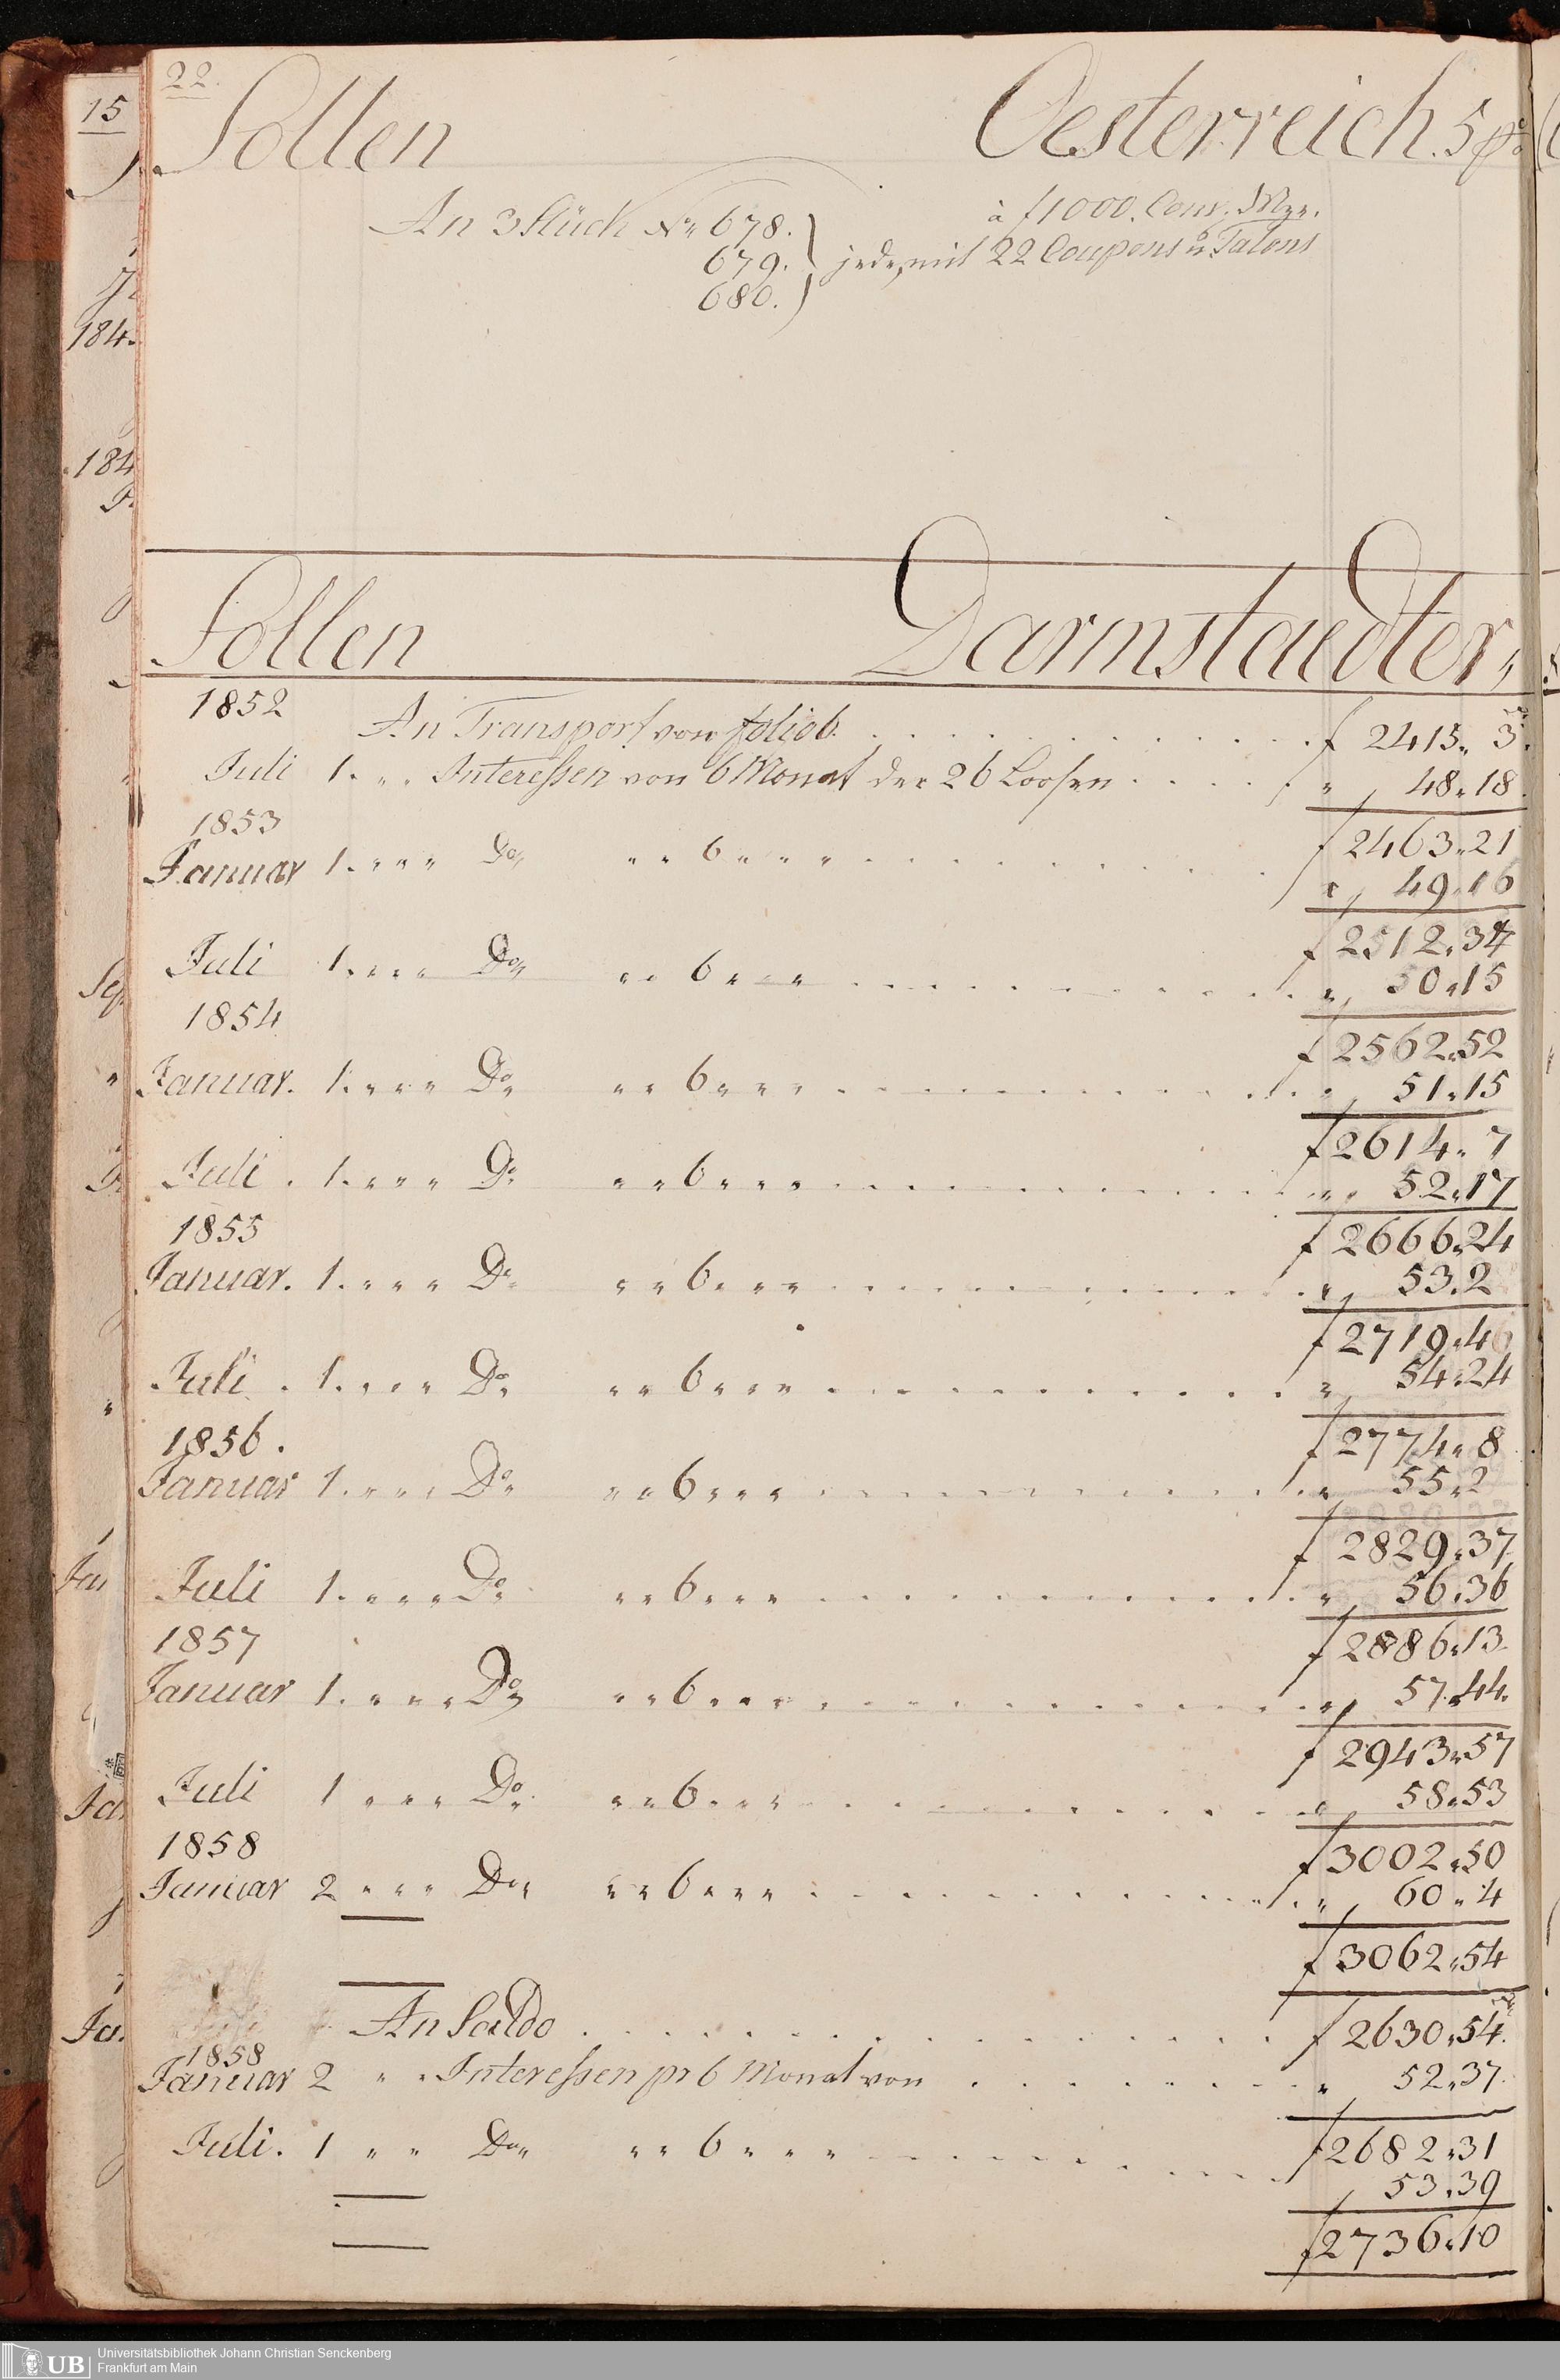 22.
Sollen Oesterreich. 5 p%
An 3 Stück No 678. à f 1000. Conv. Mze.
679. jede, mit 22 Coupons u Talons
680.
Sollen Darmstaedter,
1852
An Transport von folio 6. f 2415. 3.
Juli 1. " " Interessen von 6 Monat der 26 Loosen " 48.18.
1853 f 2463.21
Januar 1. " " " Do " " 6 " " " " 49.16
f 2512.37
Juli 1. " " " Do " " 6 " " " " 50.15
1854
f 2562.52
Januar. 1. " " " Do " " 6 " " " " 51.15
f 2614. 7
Juli. 1. " " " Do " " 6 " " " " 52.17
1855 f 2666.24
Januar. 1. " " " Do " " 6 " " " " 53.2
f 2719.46
Juli. 1. " " " Do " " 6 " " " " 54.24
1856. f 2774. 8
Januar 1. " " " Do " " 6 " " " " 55.2
f 2829.37
Juli 1. " " " Do " " 6 " " " " 56.36
1857 f 2886.13
Januar 1. " " " Do " " 6 " " " " 57.44.
f 2943.57
Juli 1 " " " Do " " 6 " " " " 58.53
1858 f 3002.50
Januar 2 " " " Do " " 6 " " " " 60. 4
f 3062.54
An Saldo f 2630.54.
1858
Januar 2 " " Interessen pr 6 Monat von " 52.37.
f 2682.31
Juli. 1 " " Do " " 6 " " " 53.39
f 2736.10
15
184.
184
UB
Universitätsbibliothek Johann Christian Senckenberg
Frankfurt am Main